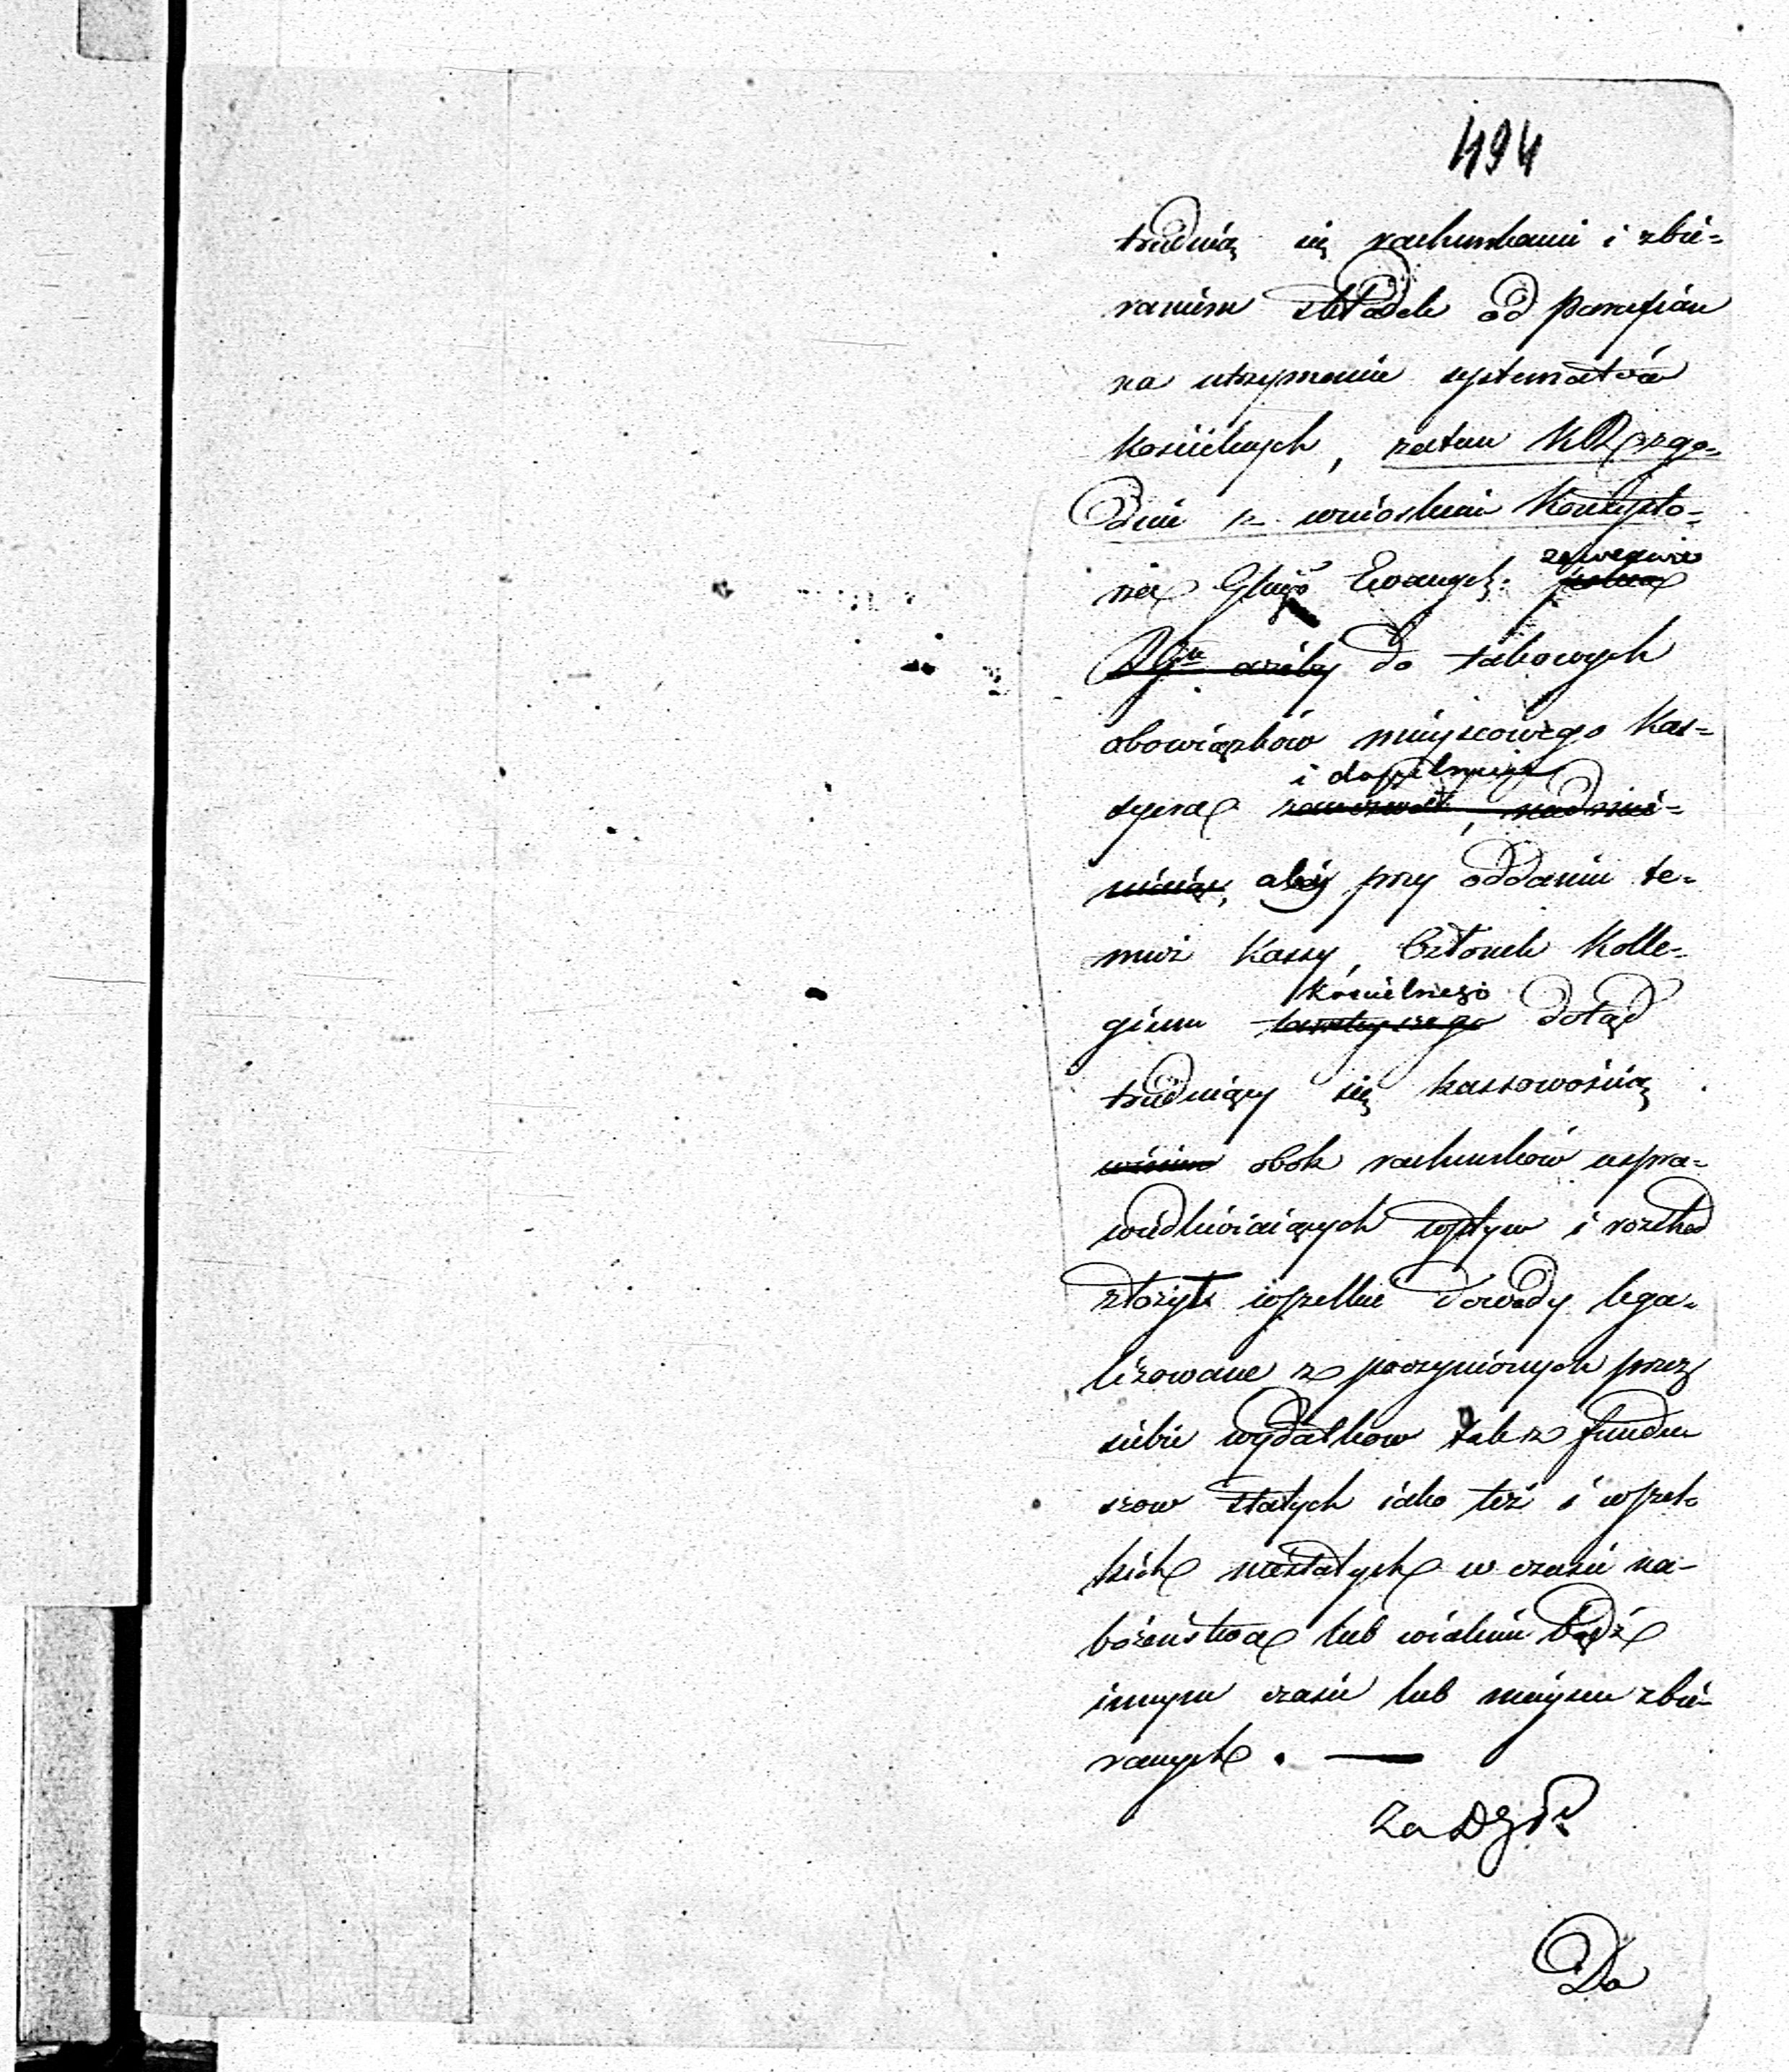 494
trudnią się rachunkami i zbie-
raniem składek od parafian
na utrzymanie systematów
kościelnych, zatem KR zgo-
dnie z wnioskiem Konsysto-
rza Glnego Ewangel:
zawezwie
do takowych
obowiązków mieyscowego Kas-
i dopilnuie
syera
aby przy oddaniu te-
muż Kassy, Członek Kolle-
kościelnego
gium dotąd
trudniący się kassowością
obok rachunków uspra-
wiedliwiaiących wpływ i rozchod
złożył wszelkie dowody lega-
lizowane z poczynionych przez
siebie wydatkow tak z fundu
szow stałych iako też i wszel-
kich niestałych w czasie na-
bożeństwa lub wiakim bądź
innym czasie lub mieyscu zbie-
ranych. —
Za
Do